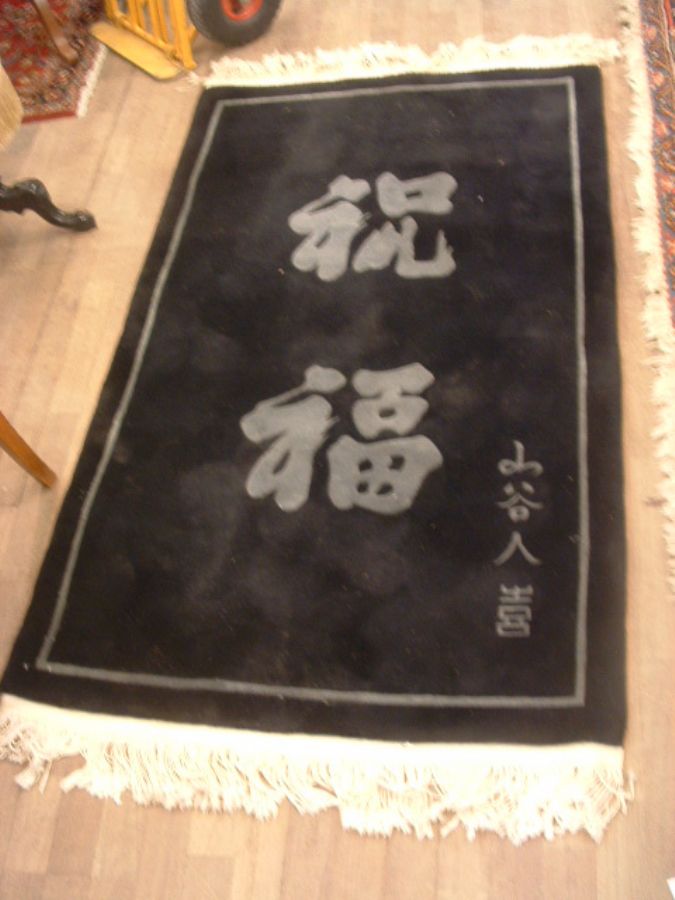 祝福
山谷人